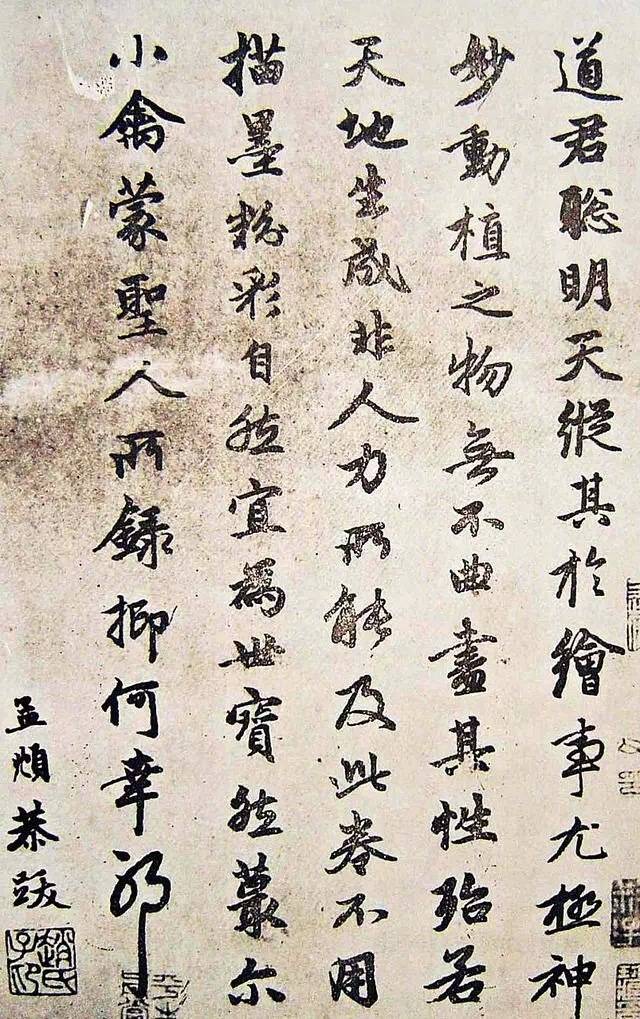 道君聰明天縱其於繪事尤極神
妙動植之物無不曲盡其性殆若
天地生成非人力所能及此卷不用
描墨粉彩自然宜為世寶然蕞尔
小禽蒙聖人所錄抑何幸耶
孟頫恭跋
趙氏子昂